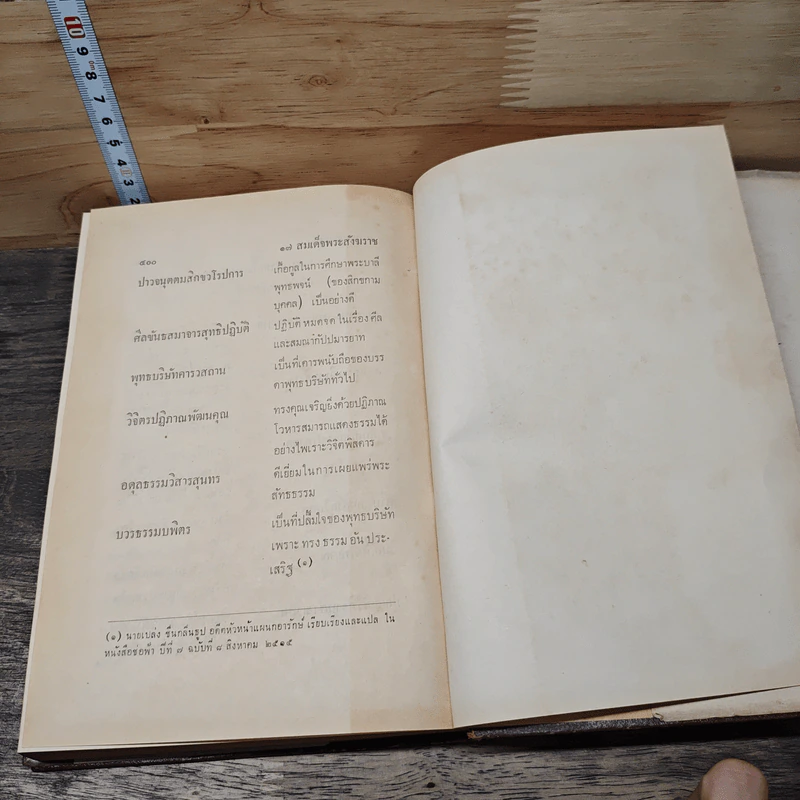 10
9
8
7
6
5
4
3
2
๑๗ สมเด็จพระสังฆราช
๕๖๐
ปาวจนุตตมสิกขวโรปการ
เกื้อกูลในการศึกษาพระบาลี
พุทธพจน์ (ของสิกขกาม
บุคคล) เป็นอย่างดี
ศีลขันธสมาจารสุทธิปฏิบัติ
ปฏิบัติ หมดจด ในเรื่อง ศีล
และสมณากัปปมารยาท
พุทธบริษัทคารวสถาน
เป็นที่เคารพนับถือของบรร
ดาพุทธบริษัททั่วไป
วิจิตรปฏิภาณพัฒนคุณ
ทรงคุณเจริญยิ่งด้วยปฏิภาณ
โวหารสมารถแสดงธรรมได้
อย่างไพเราะวิจิตพิสดาร
อดุลธรรมวิสารสุนทร
ดีเยี่ยมในการเผยแพร่พระ
สัทธธรรม
บวรธรรมบพิตร
เป็นที่ปลื้มใจของพุทธบริษัท
เพราะ ทรง ธรรม อัน ประ-
เสริฐ (๑)
(๑) นายเปล่ง ชื่นกลิ่นธูป อดีตหัวหน้าแผนกอารักษ์ เรียบเรียงและแปล ใน
หนังสือช่อฟ้า ปีที่ ๗ ฉบับที่ ๘ สิงหาคม ๒๕๑๕